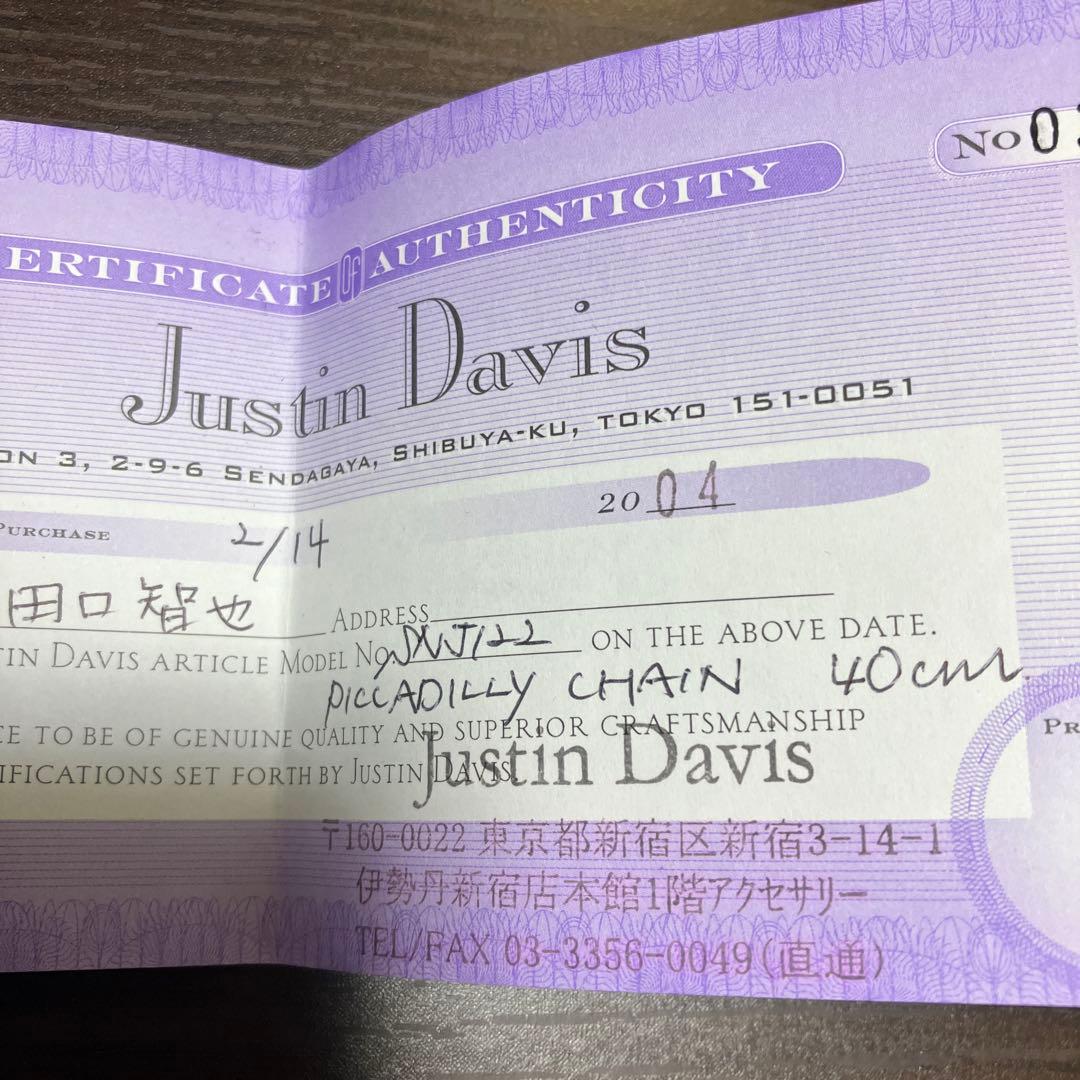 No 0
ERTIFICATE Of AUTHENTICITY
Justin Davis
ON 3, 2-9-6 SENDAGAYA, SHIBUYA-KU, TOKYO 151-0051
2004
PURCHASE 2/14
田口智也 ADDRESS
TIN DAVIS ARTICLE MODEL No. SNJ122 ON THE ABOVE DATE.
PICCADILLY CHAIN 40cm
CE TO BE OF GENUINE QUALITY AND SUPERIOR CRAFTSMANSHIP
IFICATIONS SET FORTH BY JUSTIN DAVIS.
Justin Davis
PR
〒160-0022 東京都新宿区新宿3-14-1
伊勢丹新宿店本館1階アクセサリー
TEL/FAX 03-3356-0049(直通)